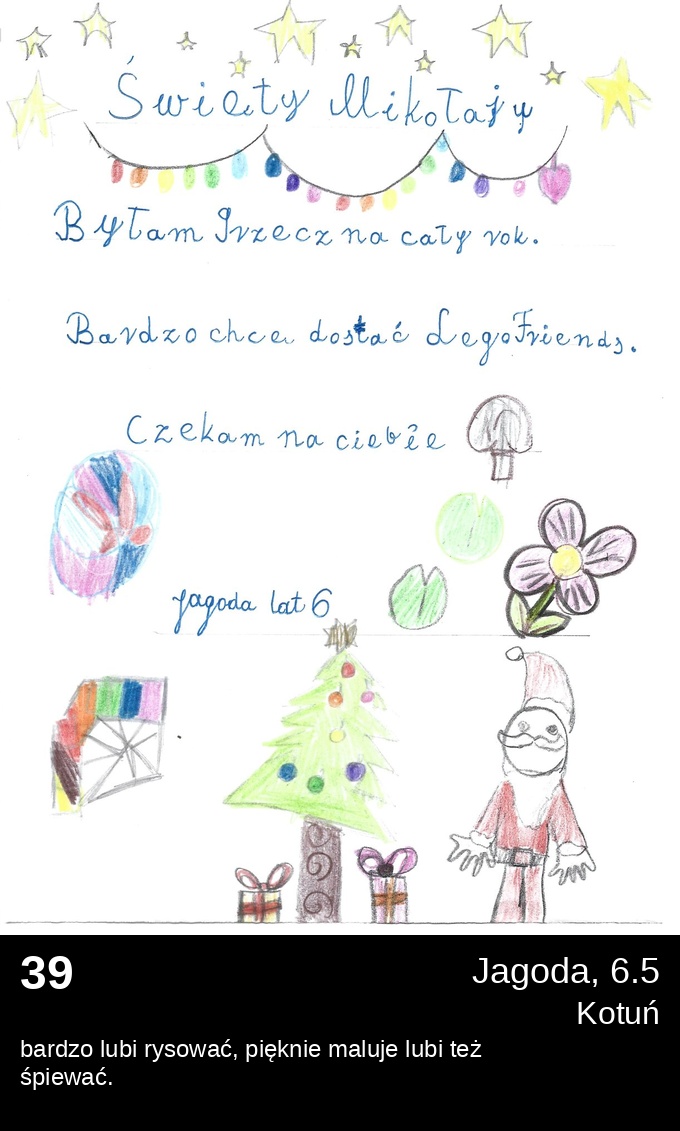 Święty Mikołaju
Byłam grzeczna cały rok.
Bardzo chcę dostać Lego Friends.
Czekam na ciebie
Jagoda lat 6
39
Jagoda, 6.5
Kotuń
bardzo lubi rysować, pięknie maluje lubi też
śpiewać.